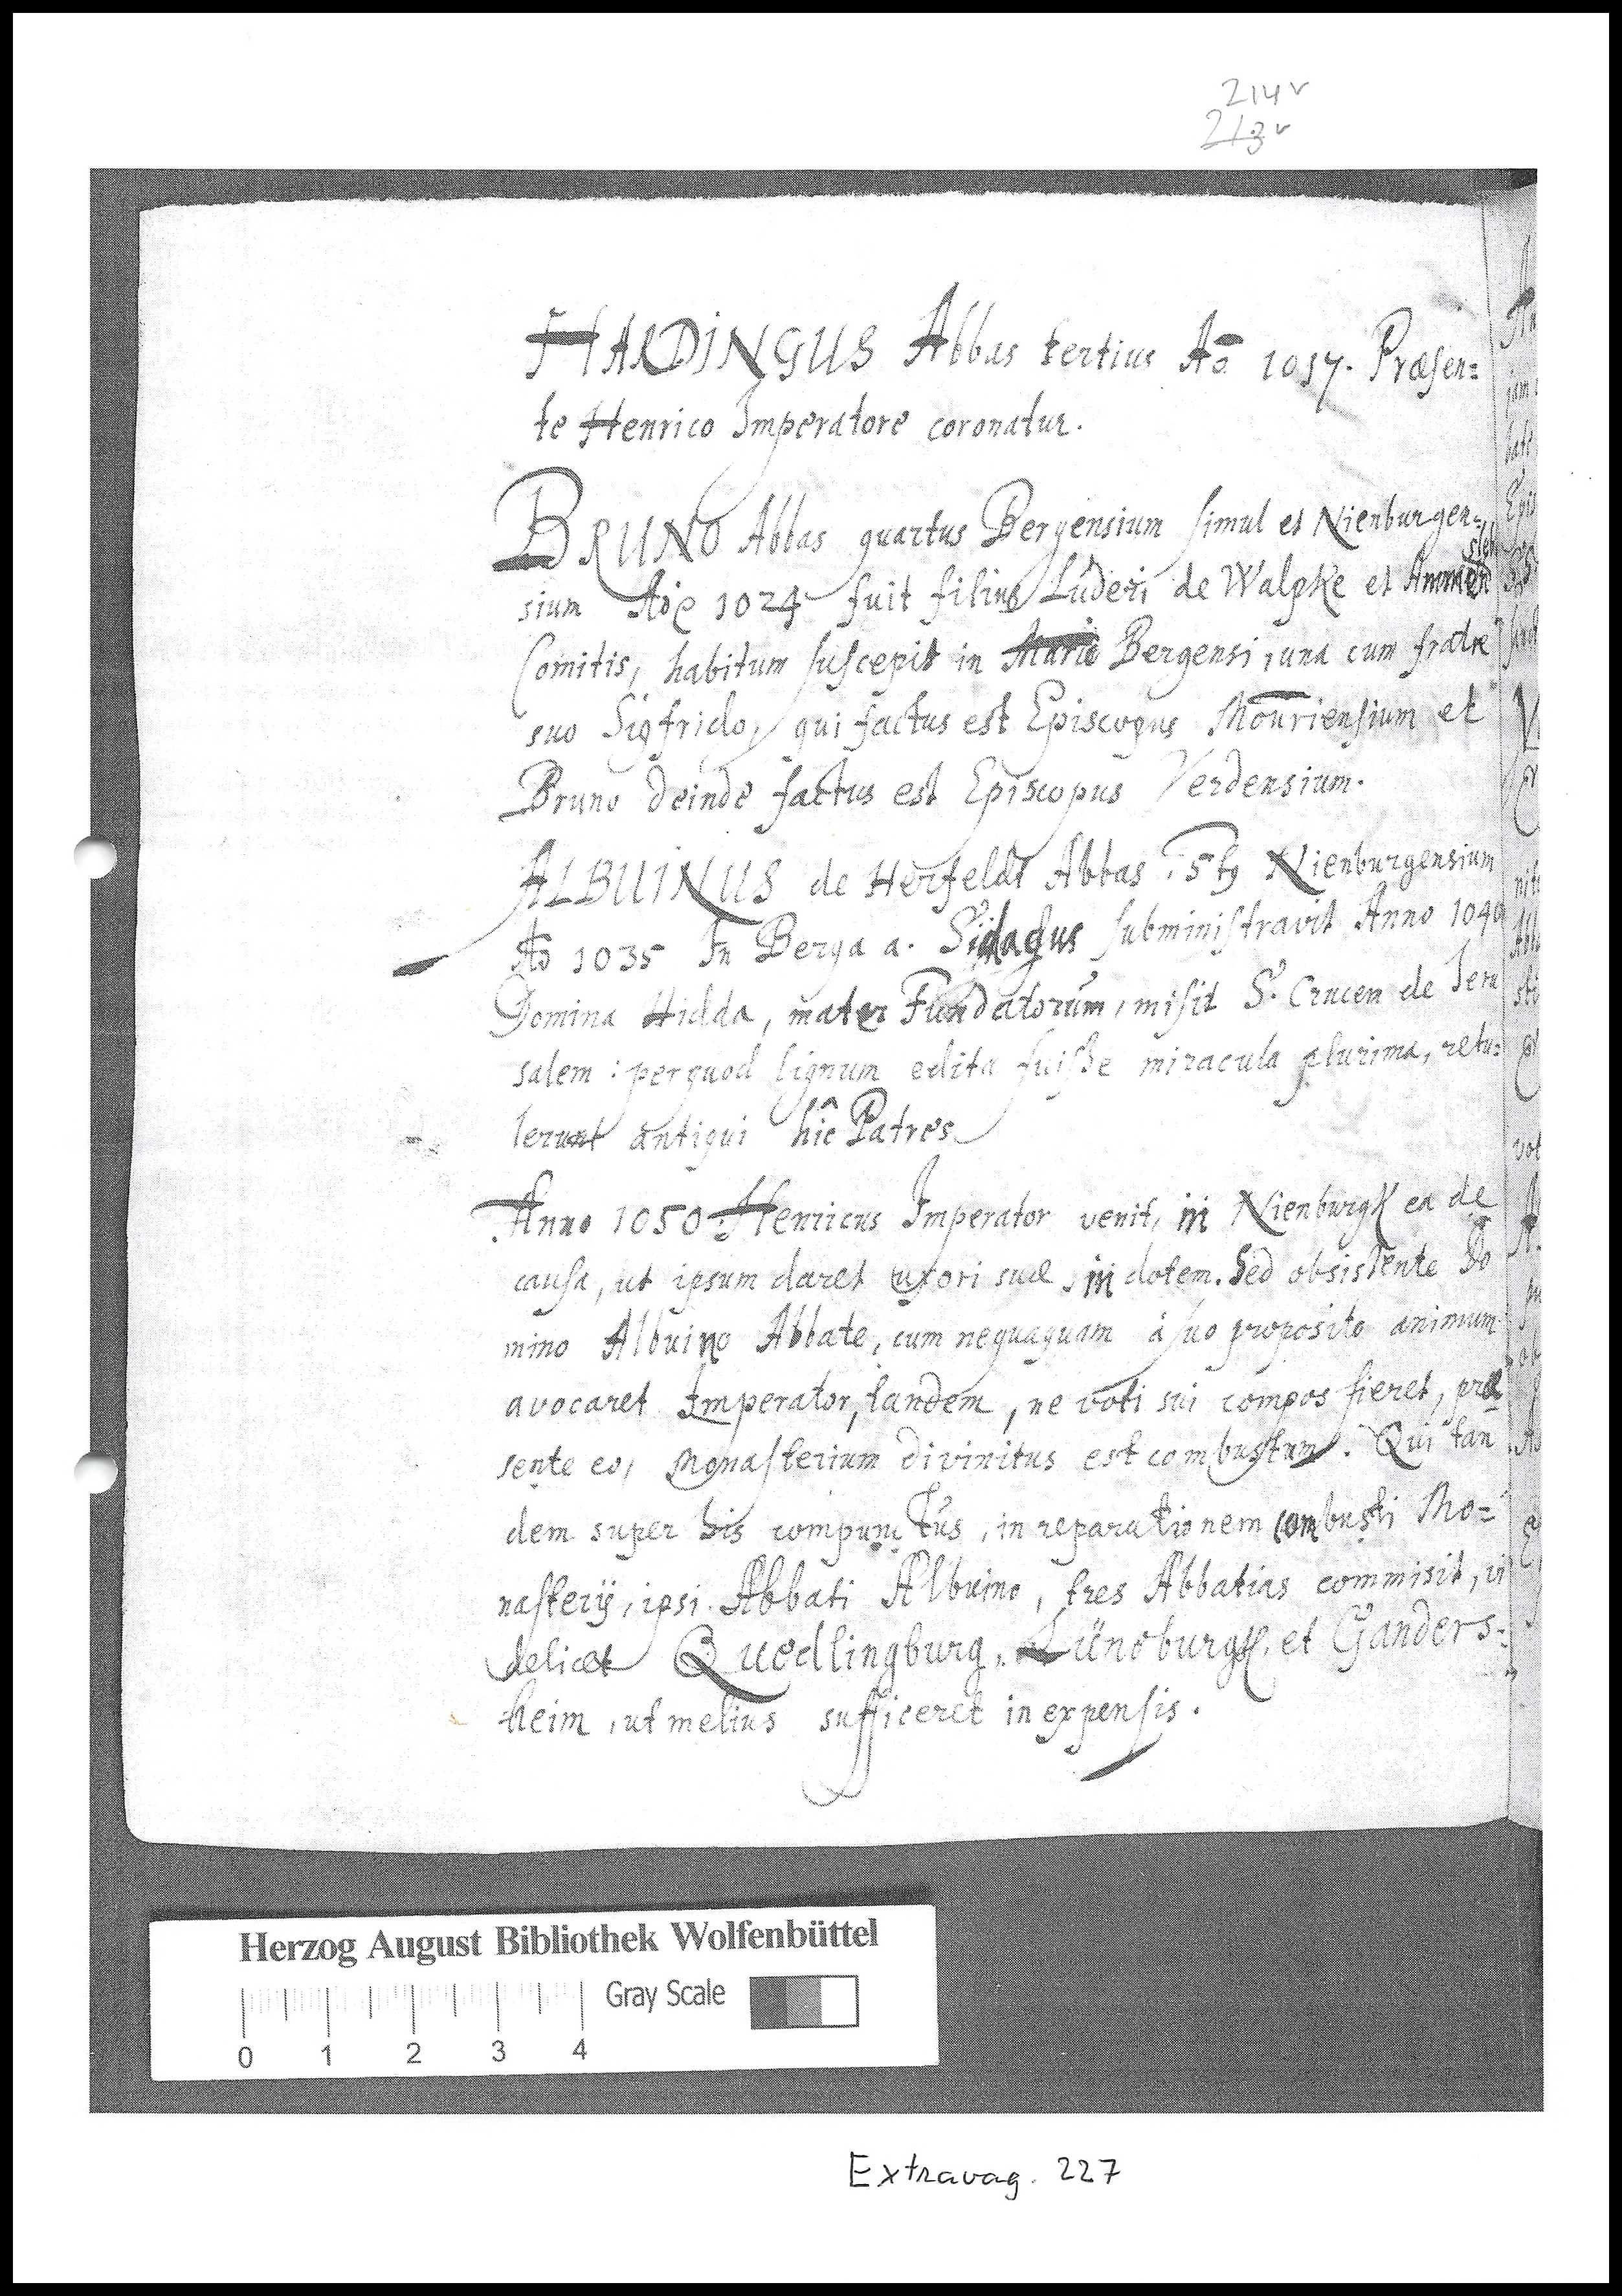 214v
213v
HARDINGUS Abbas tertius Aō. 1017. Præsen=
te Henrico Imperatore coronatur.
BRUNO Abbas quartus Bergensium simul et Nienburgen=
sium Aō 1024 fuit filius Lŭderi de Walpke et
Comitis, habitum suscepit in Bergensi, una cum fratre
suo Sigfrido, qui factus est Episcopus et
Bruno deinde factus est Episcopus Verdensium.
ALBUINUS de Herfeldt Abbas 5tꝰ Nienburgensium
Aō 1035 In Berga a. Sidagus subministravit Anno 1040
Domina Hidda, mater Fundatorum, misit S. Crucem de Jeru
salem : per quod lignum edita fuisse miracula plurima, retu=
lerunt antiqui hîc Patres
Anno 1050 Henricus Imperator venit, in Nienburgk ea de
causa, ut ipsum daret uxori suæ in dotem. Sed obsistente Do
mino Albuino Abbate, cum nequaquam à suo proposito animum
avocaret Imperator, tandem, ne voti sui compos fieret, præ
sente eo, Monasterium divinitus est combustum. Qui tan
dem super his compunctŭs, in reparationem combusti Mo=
nasterij, ipsi Abbati Albuino, tres Abbatias commisit, vi
delicet Quedlingburg, Lüneburgk, et Ganders=
heim, ut melius sufficeret in expensis.
Herzog August Bibliothek Wolfenbüttel
Gray Scale
0 1 2 3 4
Extravag. 227